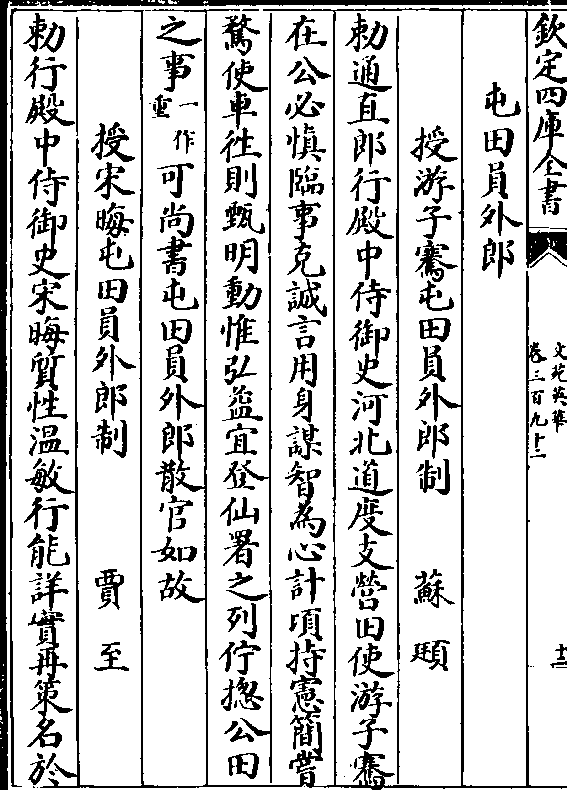 欽定四庫全書
文苑英華
卷三百九十二
十二
屯田員外郎
授游子騫屯田員外郎制 蘇頲
勅通直郎行殿中侍御史河北道度支營田使游子騫
在公必慎臨事克誠言用身謀智為心計頃持憲簡嘗
騖使車徃則甄明動惟弘益宜登仙署之列佇揔公田
之事一作重可尚書屯田員外郎散官如故
授宋晦屯田員外郎制 賈至
勅行殿中侍御史宋晦質性温敏行能詳實再策名於